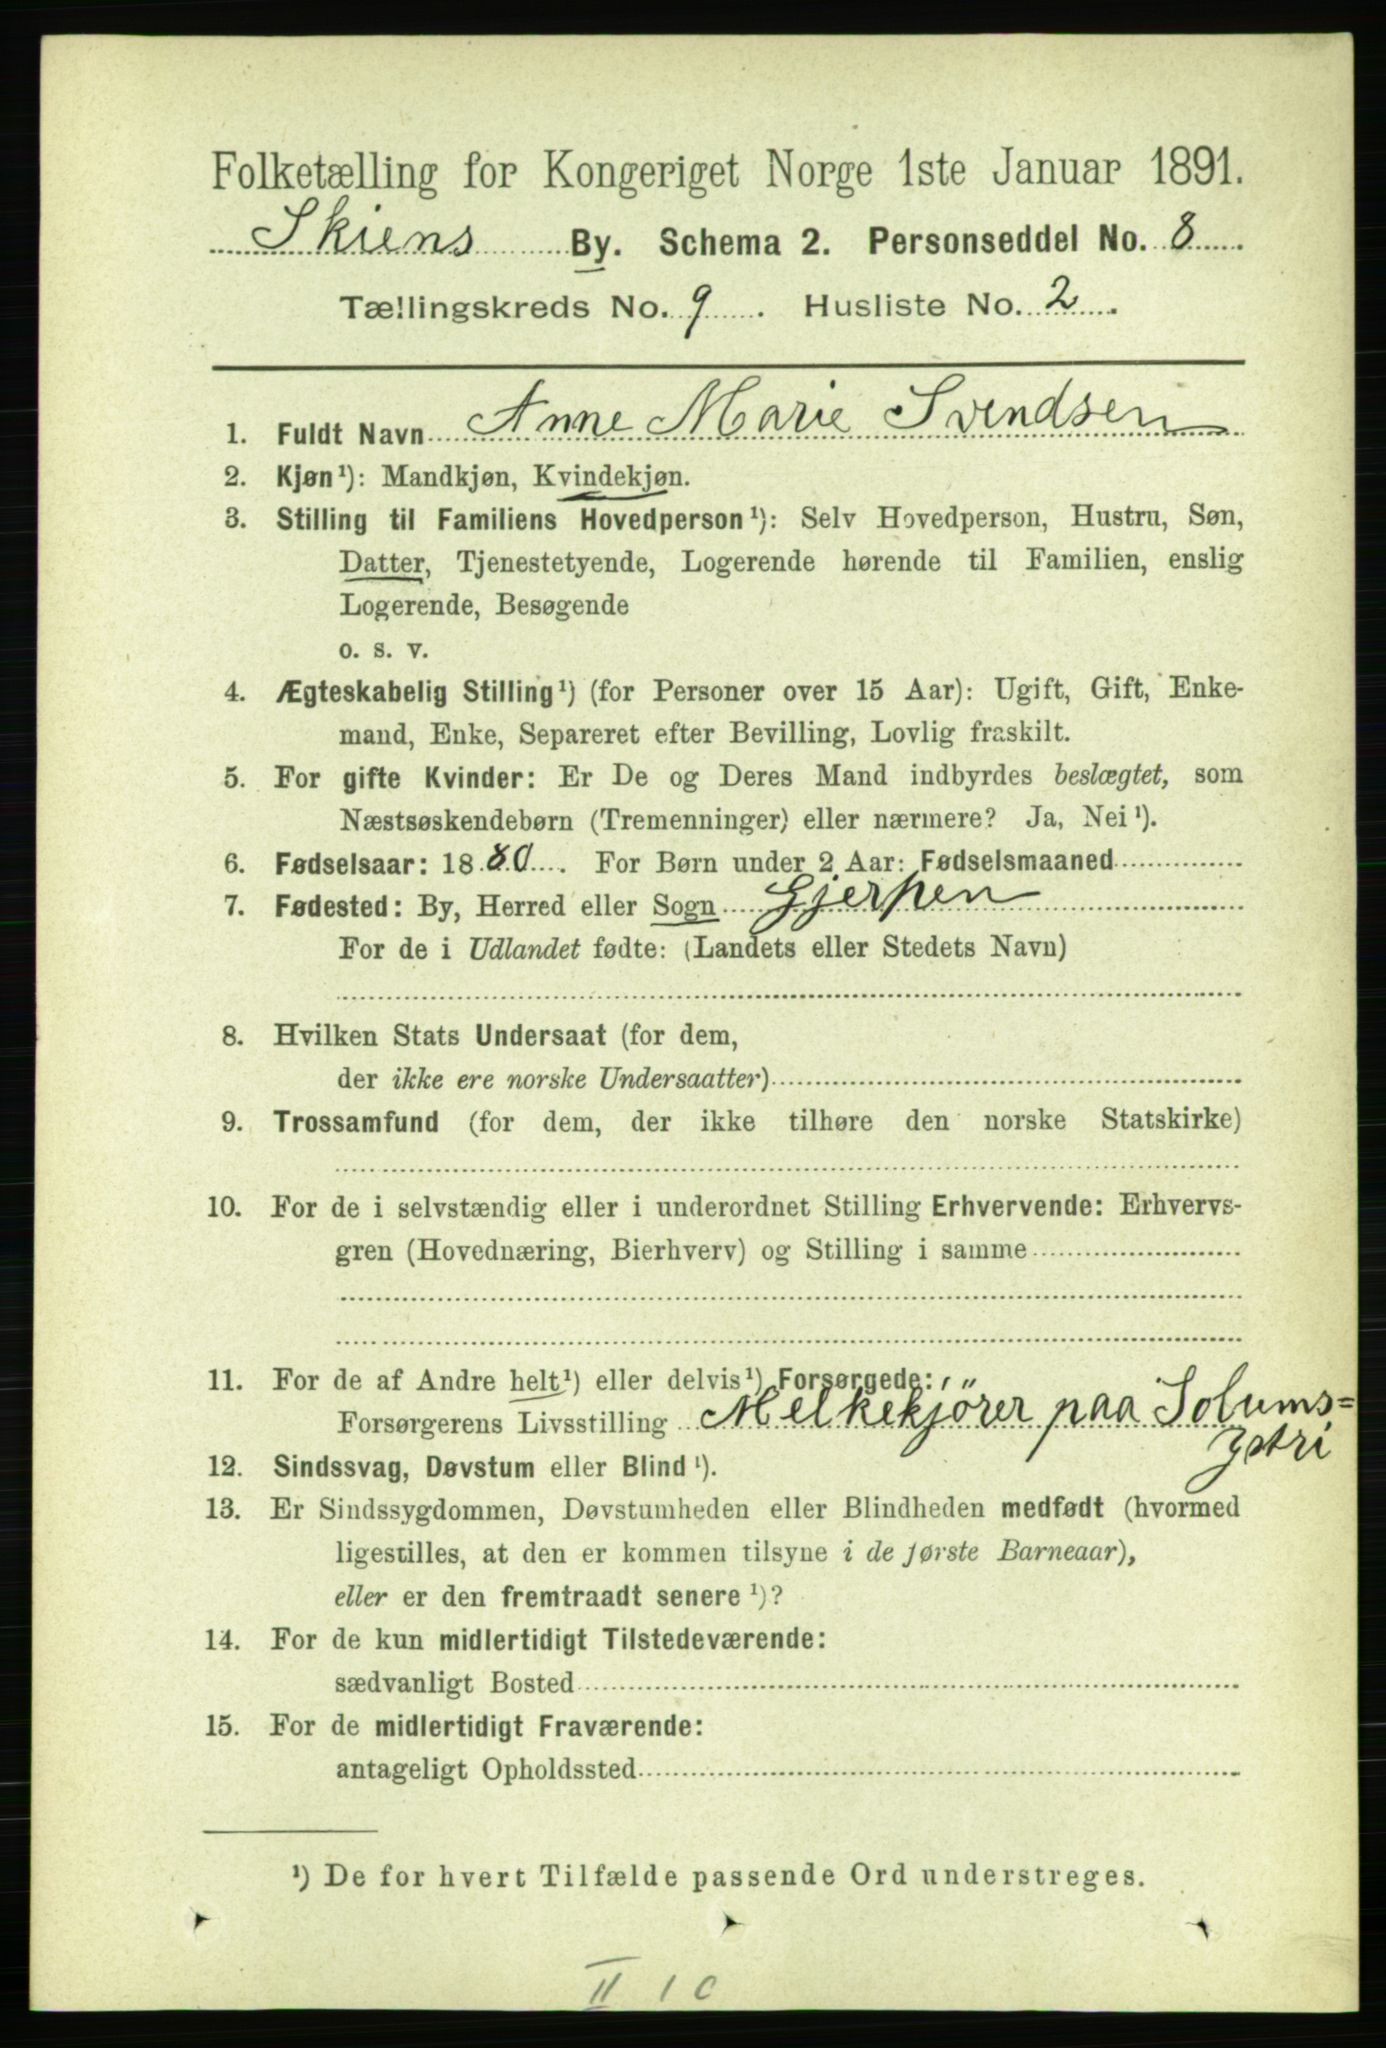 Folketælling for Kongeriget Norge 1ste Januar 1891.
Skiens By. Schema 2. Personseddel No. 8
Tællingskreds No. 9. Husliste No. 2.
1. Fuldt Navn Anne Marie Svendsen
2. Kjøn¹): Mandkjøn, Kvindekjøn.
3. Stilling til Familiens Hovedperson¹): Selv Hovedperson, Hustru, Søn,
Datter, Tjenestetyende, Logerende hørende til Familien, enslig
Logerende, Besøgende
o. s. v.
4. Ægteskabelig Stilling¹) (for Personer over 15 Aar): Ugift, Gift, Enke-
mand, Enke, Separeret efter Bevilling, Lovlig fraskilt.
5. For gifte Kvinder: Er De og Deres Mand indbyrdes beslægtet, som
Næstsøskendebørn (Tremenninger) eller nærmere? Ja, Nei¹).
6. Fødselsaar: 1880. For Børn under 2 Aar: Fødselsmaaned
7. Fødested: By, Herred eller Sogn Gjerpen
For de i Udlandet fødte: (Landets eller Stedets Navn)
8. Hvilken Stats Undersaat (for dem,
der ikke ere norske Undersaatter)
9. Trossamfund (for dem, der ikke tilhøre den norske Statskirke)
10. For de i selvstændig eller i underordnet Stilling Erhvervende: Erhvervs-
gren (Hovednæring, Bierhverv) og Stilling i samme
11. For de af Andre helt¹) eller delvis¹) Forsørgede:
Forsørgerens Livsstilling Melkekjörer paa Solums=
Ystri
12. Sindssvag, Døvstum eller Blind¹).
13. Er Sindssygdommen, Døvstumheden eller Blindheden medfødt (hvormed
ligestilles, at den er kommen tilsyne i de første Barneaar),
eller er den fremtraadt senere¹)?
14. For de kun midlertidigt Tilstedeværende:
sædvanligt Bosted
15. For de midlertidigt Fraværende:
antageligt Opholdssted
¹) De for hvert Tilfælde passende Ord understreges.
II 1 0